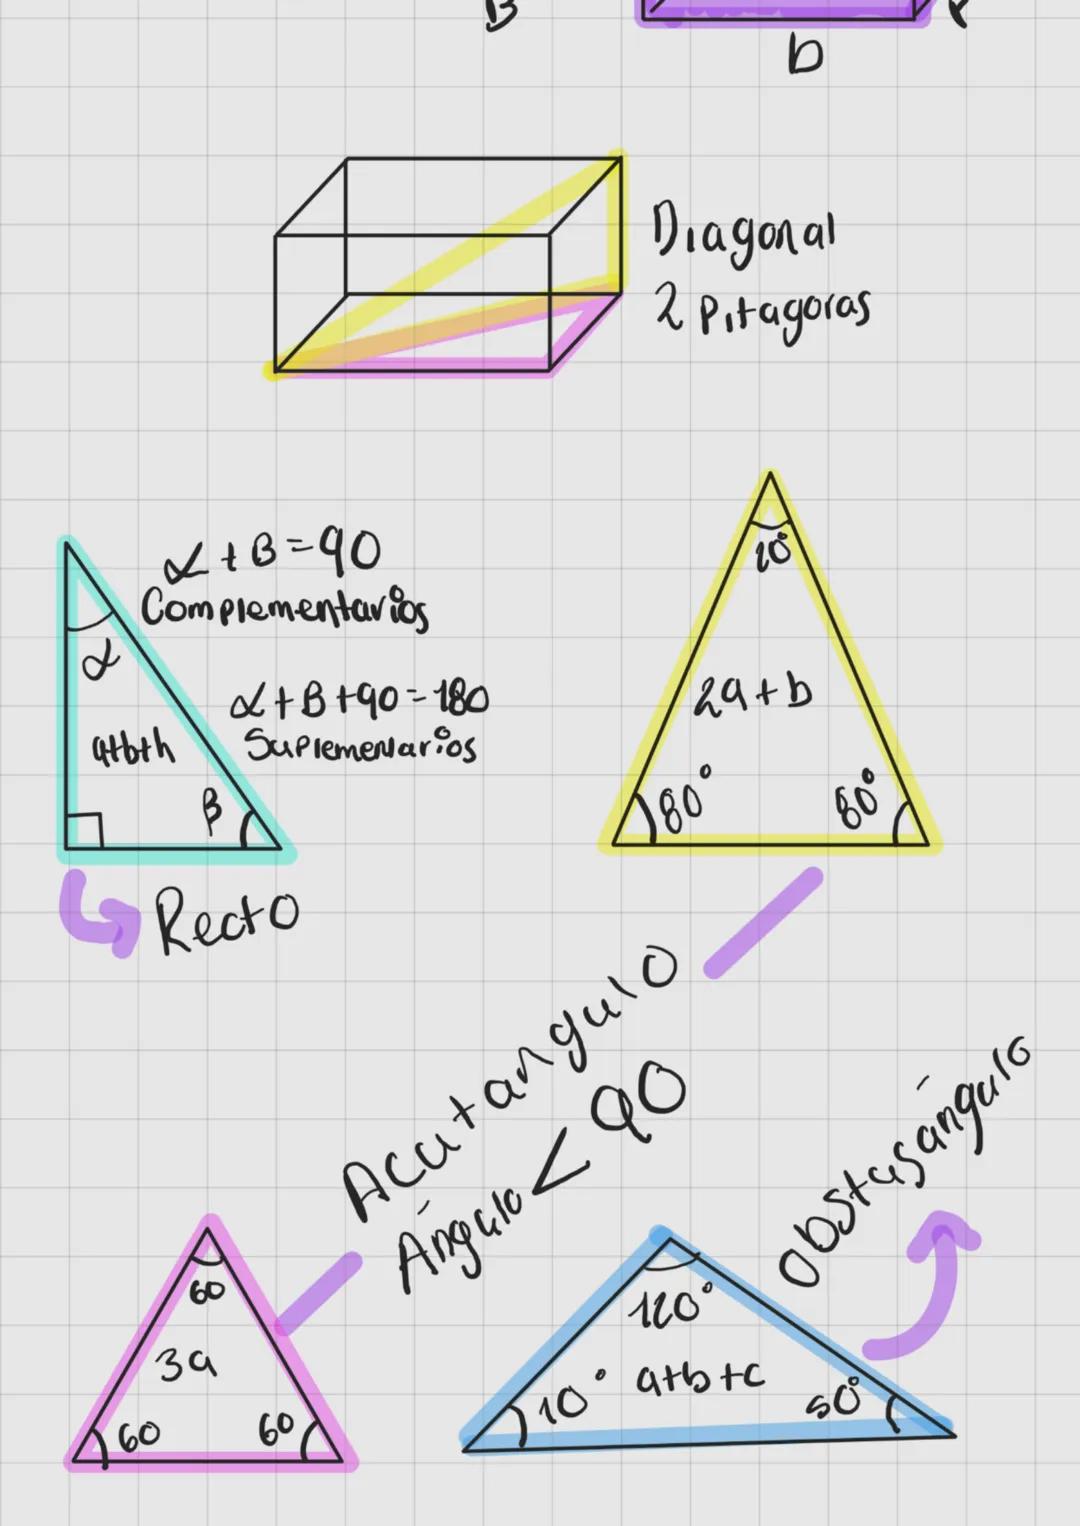 B
b
Diagonal
2 Pitagoras
α + β = 90
Complementarios
α
α + β + 90 = 180
Suplementarios
a+b+h
β
Recto
20°
2a + b
80°
80°
Acutangulo
Ángulo < 90
Obstusángulo
60
3a
60
60
120°
10°
a+b+c
50°